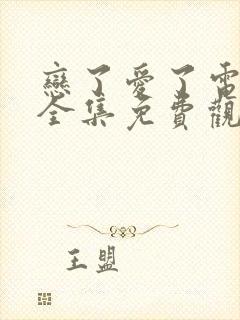 戀了愛了電
全集免費觀
王盟